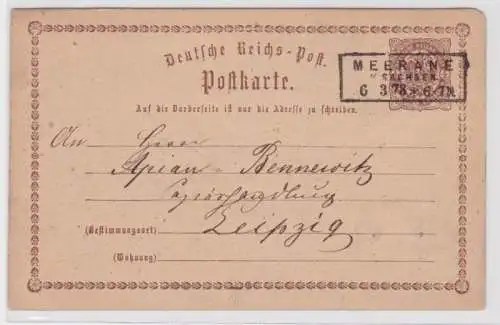 Deutsche Reichs-Post.
Postkarte.
MEERANE
i/ SACHSEN
6 3 78 * 6-7N.
Auf die Vorderseite ist nur die Adresse zu schreiben.
An Herrn
Apian-Bennewitz
Papierhandlung
Leipzig
(Bestimmungsort)
(Wohnung)